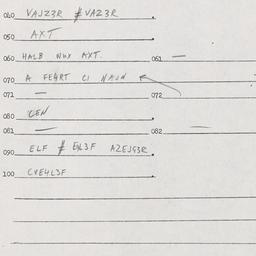 040 VAJZ3R ≠ VAZ3R.
050 AXT
060 HALB NUX AXT. 061 —
070 A FEHRT CI NAUN
071 — 072
080 ZEN
081 — 082 —
090 ELF ≠ ELL3F AZEJS3R.
100 CVE4L3F